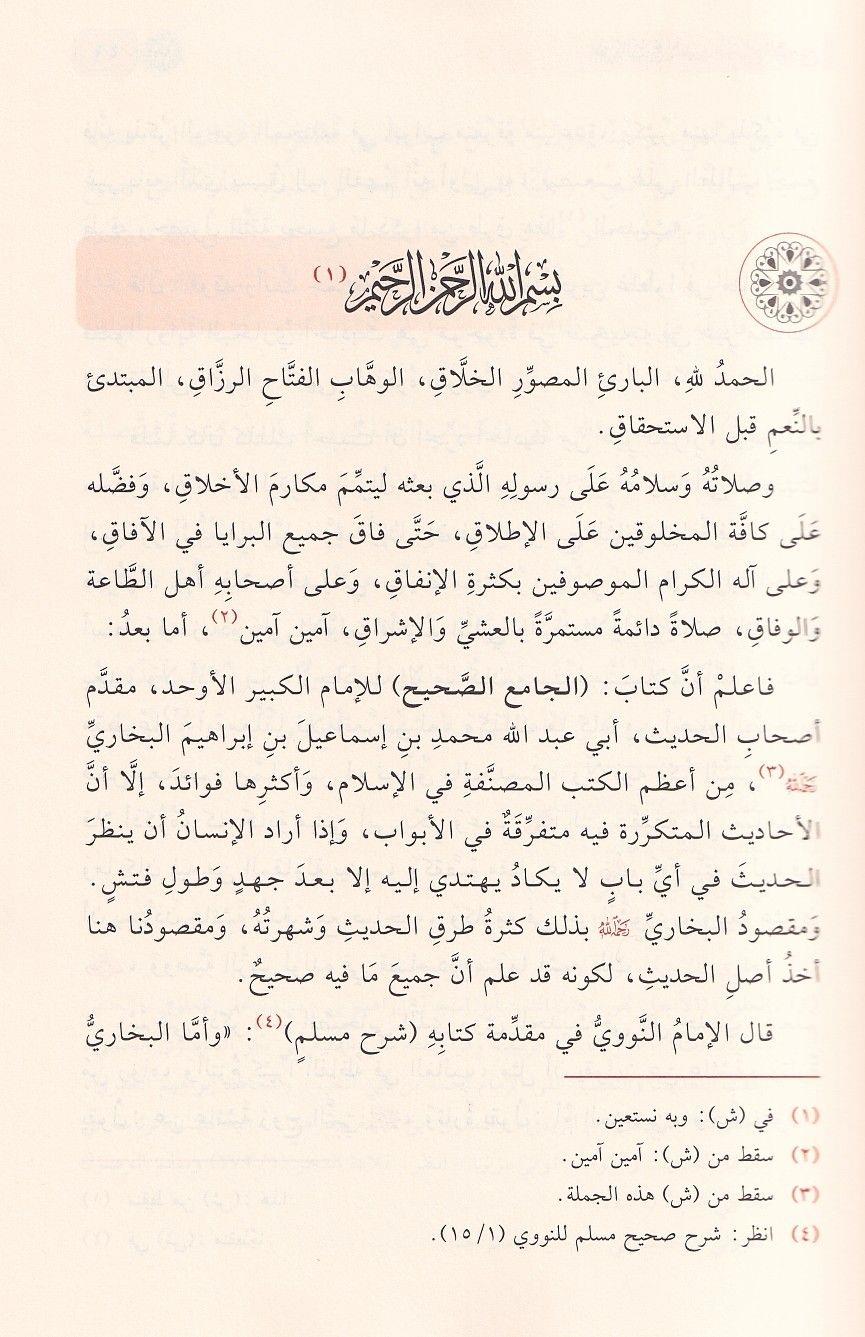 بِسْمِ اللهِ الرَّحْمٰنِ الرَّحِيْمِ (١)
الحمدُ للهِ، البارئِ المصوِّرِ الخلَّاقِ، الوهَّابِ الفتَّاحِ الرزَّاقِ، المبتدئ
بالنِّعمِ قبل الاستحقاقِ.
وصلاتُهُ وَسلامُهُ عَلَى رسولِهِ الَّذي بعثه ليتمِّمَ مكارمَ الأخلاقِ، وَفضَّله
عَلَى كافَّة المخلوقين عَلَى الإطلاقِ، حَتَّى فاقَ جميع البرايا في الآفاقِ،
وَعلى آله الكرام الموصوفين بكثرةِ الإنفاقِ، وَعلى أصحابِهِ أهل الطَّاعة
وَالوفاقِ، صلاةً دائمةً مستمرَّةً بالعشيِّ وَالإشراقِ، آمين آمين(٢)، أما بعدُ:
فاعلمْ أنَّ كتابَ: (الجامع الصَّحيح) للإمام الكبير الأوحد، مقدَّم
أصحابِ الحديث، أبي عبد الله محمدِ بنِ إسماعيلَ بنِ إبراهيمَ البخاريِّ
رَحِمَهُ اللهُ(٣)، مِن أعظم الكتب المصنَّفةِ في الإسلام، وَأكثرِها فوائدَ، إلَّا أنَّ
الأحاديث المتكرِّرة فيه متفرِّقَةٌ في الأبواب، وَإذا أراد الإنسانُ أن ينظرَ
الحديثَ في أيِّ بابٍ لا يكادُ يهتدي إليه إلا بعدَ جهدٍ وَطولِ فتشٍ.
وَمقصودُ البخاريِّ رَحِمَهُ اللهُ بذلك كثرةُ طرقِ الحديثِ وَشهرتُهُ، وَمقصودُنا هنا
أخذُ أصلِ الحديثِ، لكونه قد علم أنَّ جميعَ مَا فيه صحيحٌ.
قال الإمامُ النَّوويُّ في مقدِّمة كتابِهِ (شرح مسلمٍ)(٤): «وأمَّا البخاريُّ
(١) في (ش): وبه نستعين.
(٢) سقط من (ش): آمين آمين.
(٣) سقط من (ش) هذه الجملة.
(٤) انظر: شرح صحيح مسلم للنووي (١/ ١٥).